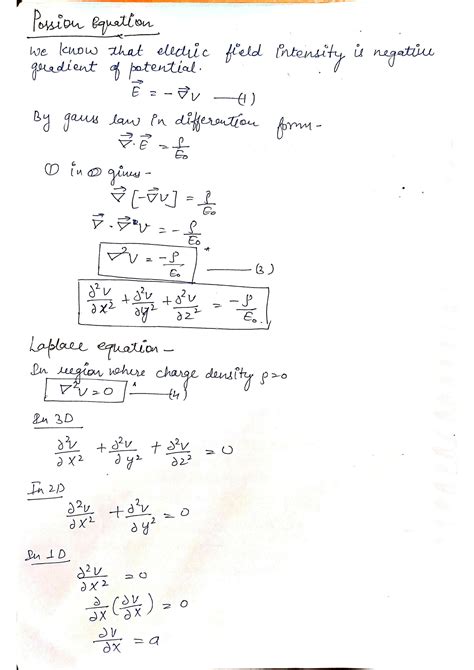 Possion Equation
We know that electric field intensity is negative
gradient of potential.
E⃗ = -∇⃗V —(1)
By gauss law in differention form-
∇⃗·E⃗ = ρ/E₀
① in ② gives-
∇⃗[-∇⃗V] = ρ/E₀
∇⃗·∇⃗V = -ρ/E₀
∇²V = -ρ/E₀ —(3)
∂²V/∂x² + ∂²V/∂y² + ∂²V/∂z² = -ρ/E₀.
Laplace equation —
In region where charge density ρ=0
∇²V = 0 —(4)
In 3D
∂²V/∂x² + ∂²V/∂y² + ∂²V/∂z² = 0
In 2D
∂²V/∂x² + ∂²V/∂y² = 0
In 1D
∂²V/∂x² = 0
∂/∂x (∂V/∂x) = 0
∂V/∂x = a